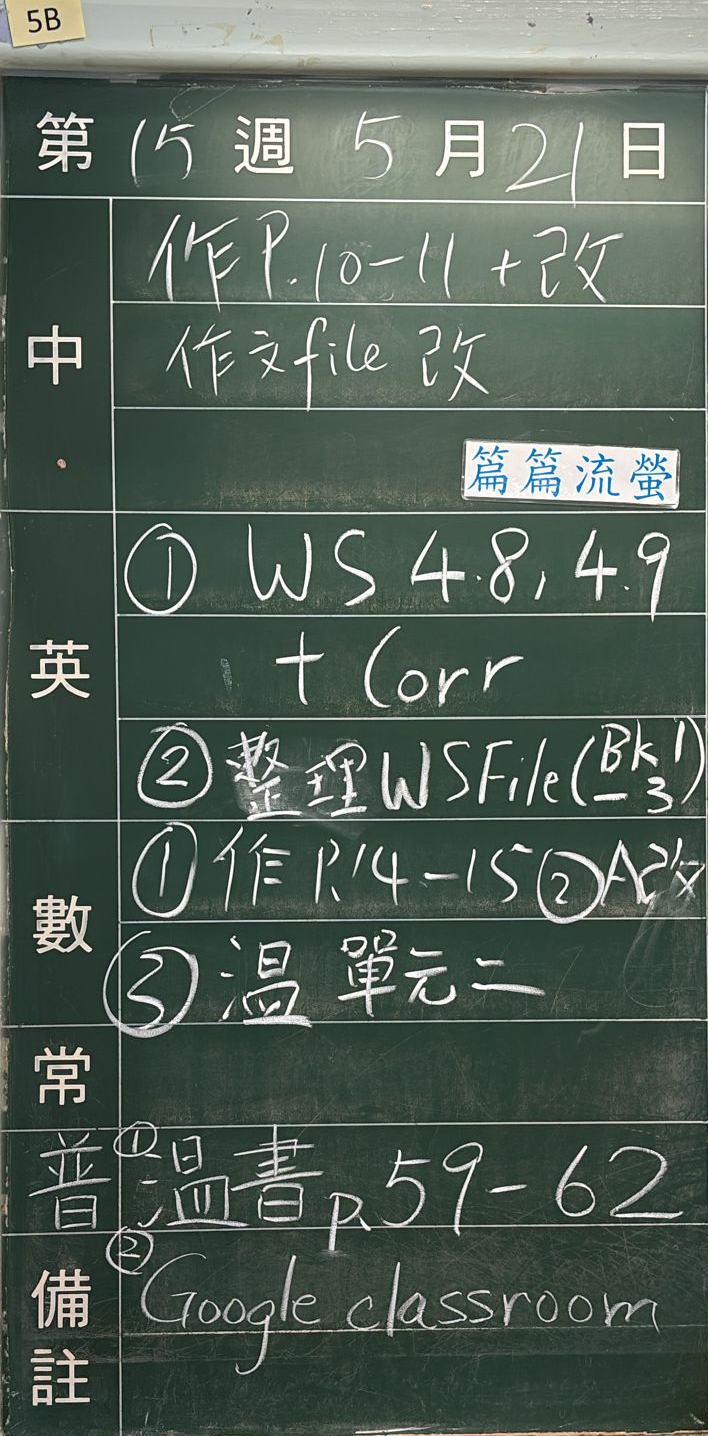 5B
第 15 週 5 月 21 日
中
作 P.10-11 + 改
作文file 改
篇篇流螢
英
① WS 4.8, 4.9
+ Corr
② 整理 WS File (Bk 1 - 3)
數
① 作 P.14-15 ② A改
③ 温 單元二
常
普
① 温書 p.59-62
② Google classroom
備註